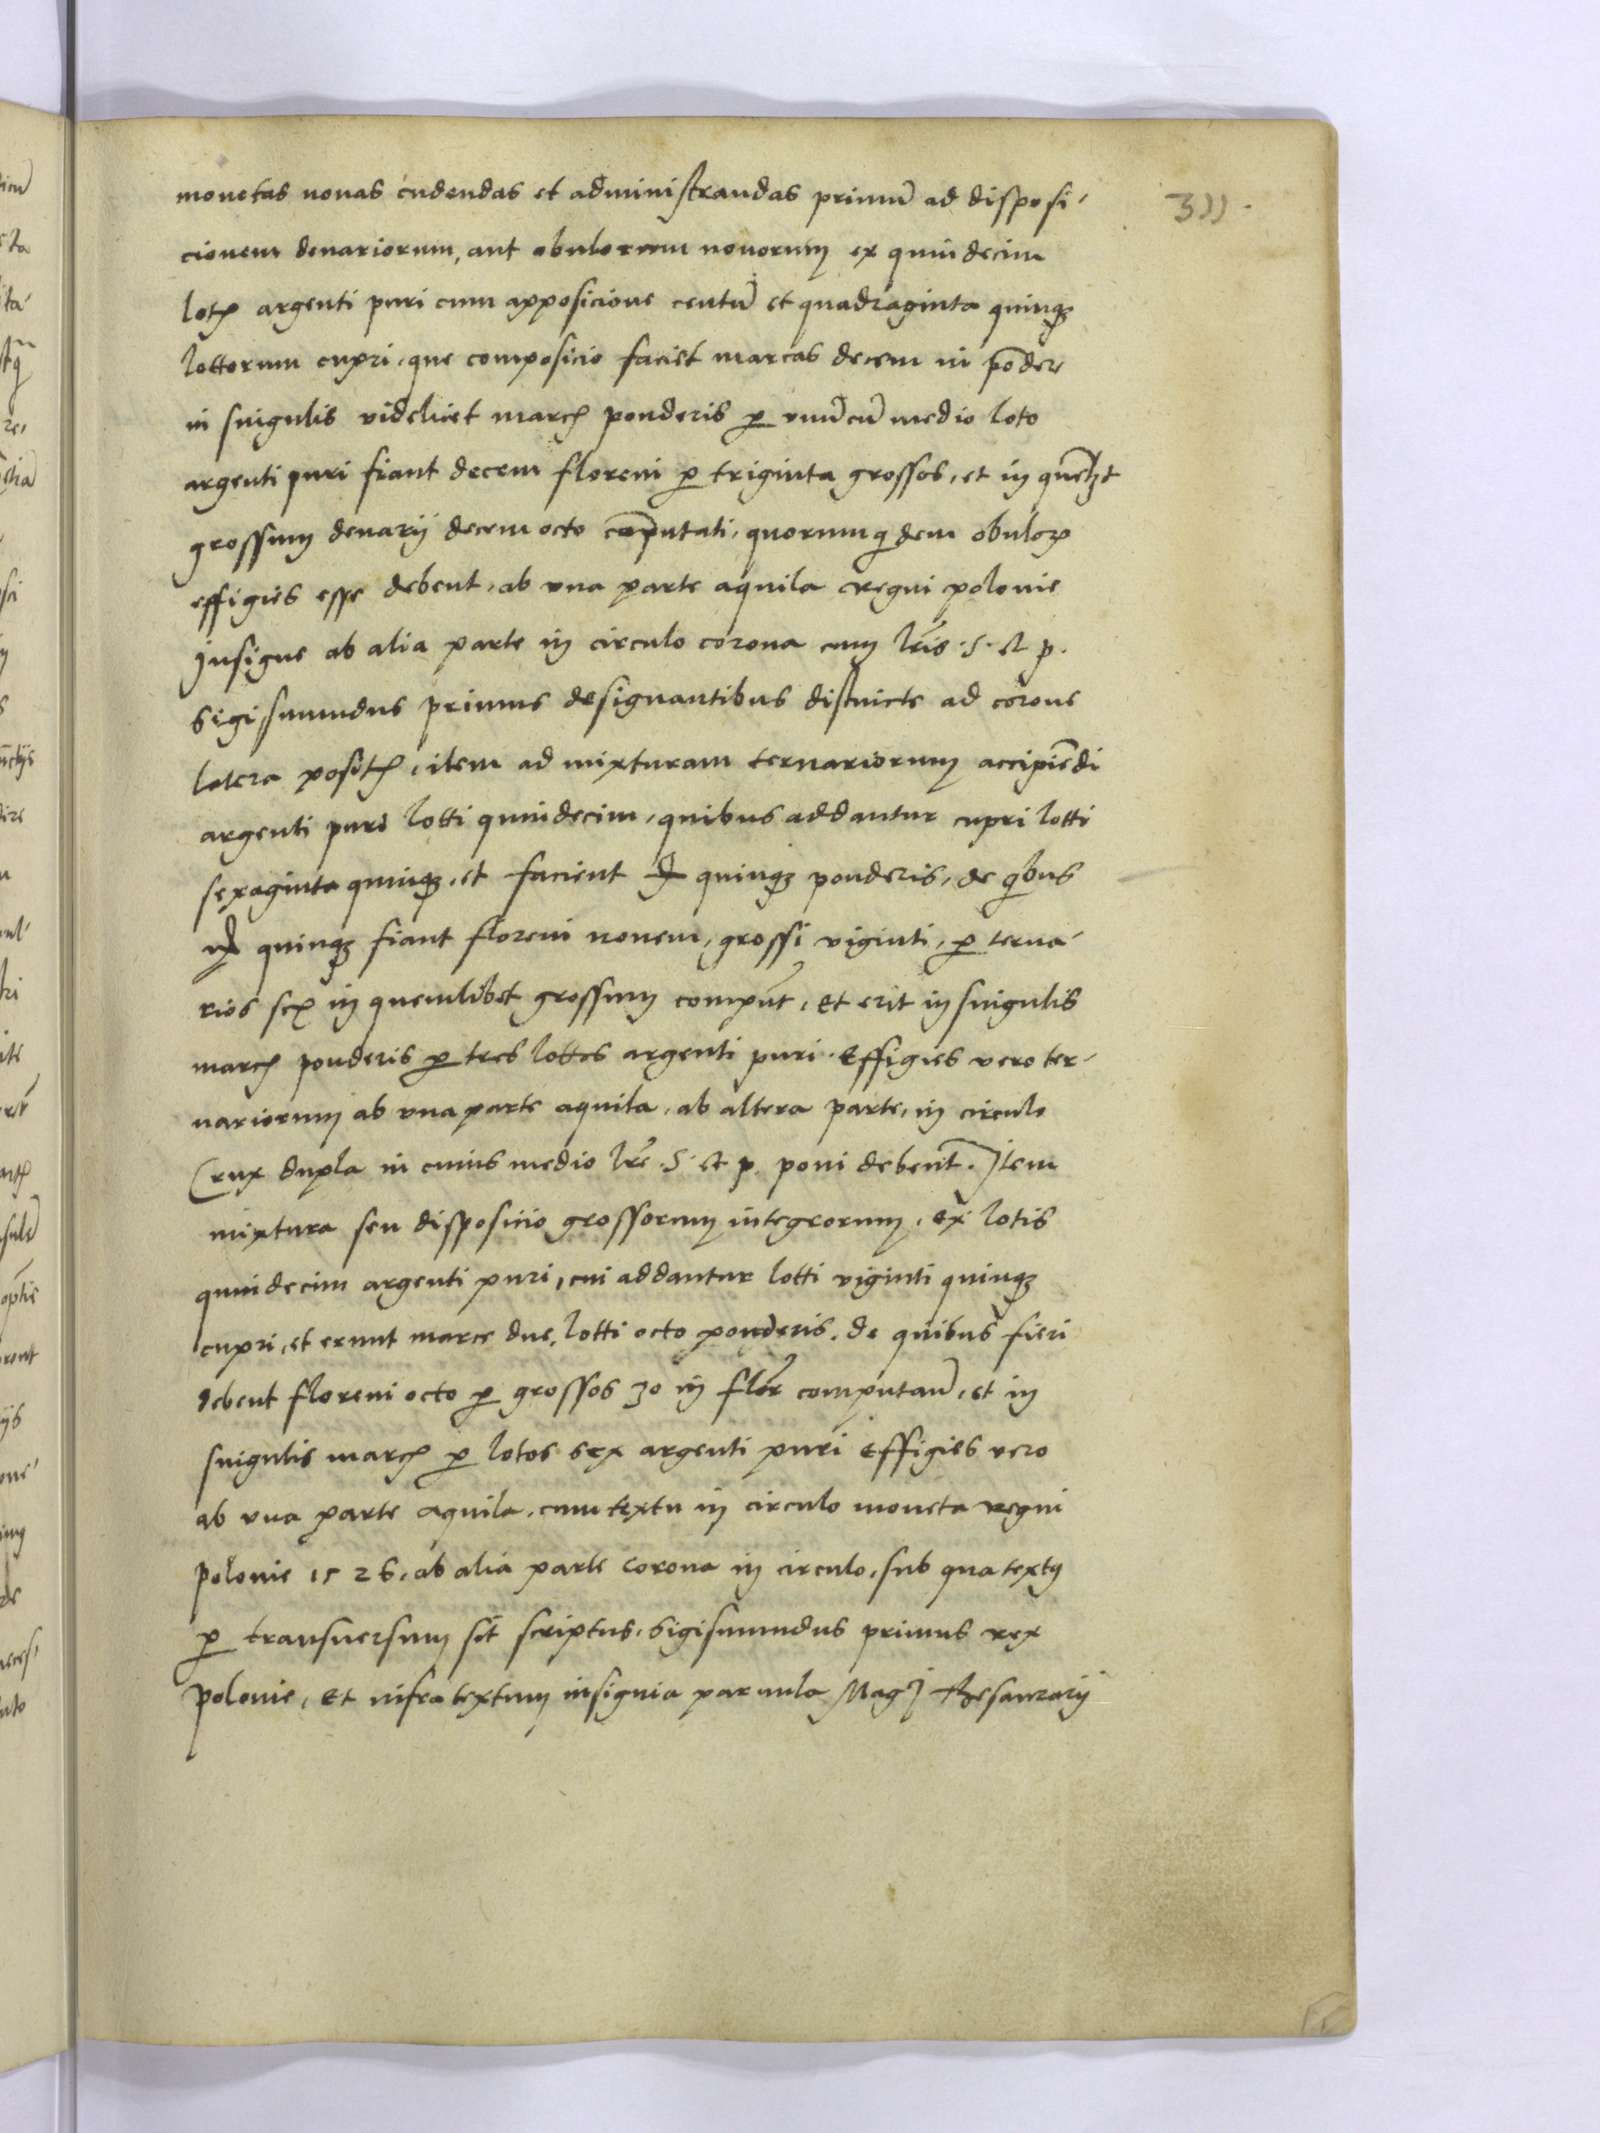 311.
monetas novas cudendas et administrandas primũ ad disposi-
cionem denariorum, aut obulorum novorum ex quindecim
lotꝭ argenti puri cum apposicione centũ et quadraginta quinqꝫ
lottorum cupri, que composicio faciet marcas decem in põdere
in singulis videlicet marcꝭ ponderis ꝑ vnũ cũ medio loto
argenti puri fiant decem floreni ꝑ triginta grossos, et in quẽlꝫt
grossum denarij decem octo cõputati, quorumquidem obuloꝝ
effigies esse debent, ab vna parte aquila regni polonie
Insigne ab alia parte in circulo corona cum lr̃is .S. et p.
Sigismundus primus designantibus distincte ad corone
latera positꝭ, item ad mixturam ternariorum accipiẽdi
argenti puri lotti quindecim, quibus addantur cupri lotti
sexaginta quinqꝫ, et facient quinqꝫ ponderis, de qibus
quinqꝫ fiant floreni novem, grossi viginti, ꝑ terna-
rios sex in quemlibet grossum comput̃, et erit in singulis
marcꝭ ponderis ꝑ tres lottos argenti puri. Effigies vero ter-
nariorum ab vna parte aquila, ab altera parte, in circulo
Crux dupla in cuius medio lr̃e .S. et p. poni debent̃. Item
mixtura seu disposicio grossorum integrorum, ex lotis
quindecim argenti puri, cui addantur lotti viginti quinqꝫ
cupri, et erunt marce due, lotti octo ponderis. de quibus fieri
debent floreni octo ꝑ grossos 30 in flor̃ computan̄, et in
singulis marcꝭ ꝑ lotos sex argenti puri Effigies vero
ab vna parte aquila, cum textu in circulo moneta regni
polonie 1526, ab alia parte corona in circulo, sub qua textꝯ
ꝑ transuersum sit scriptus, Sigismundus primus rex
polonie, Et infra textum insignia parvula Thesaurarij